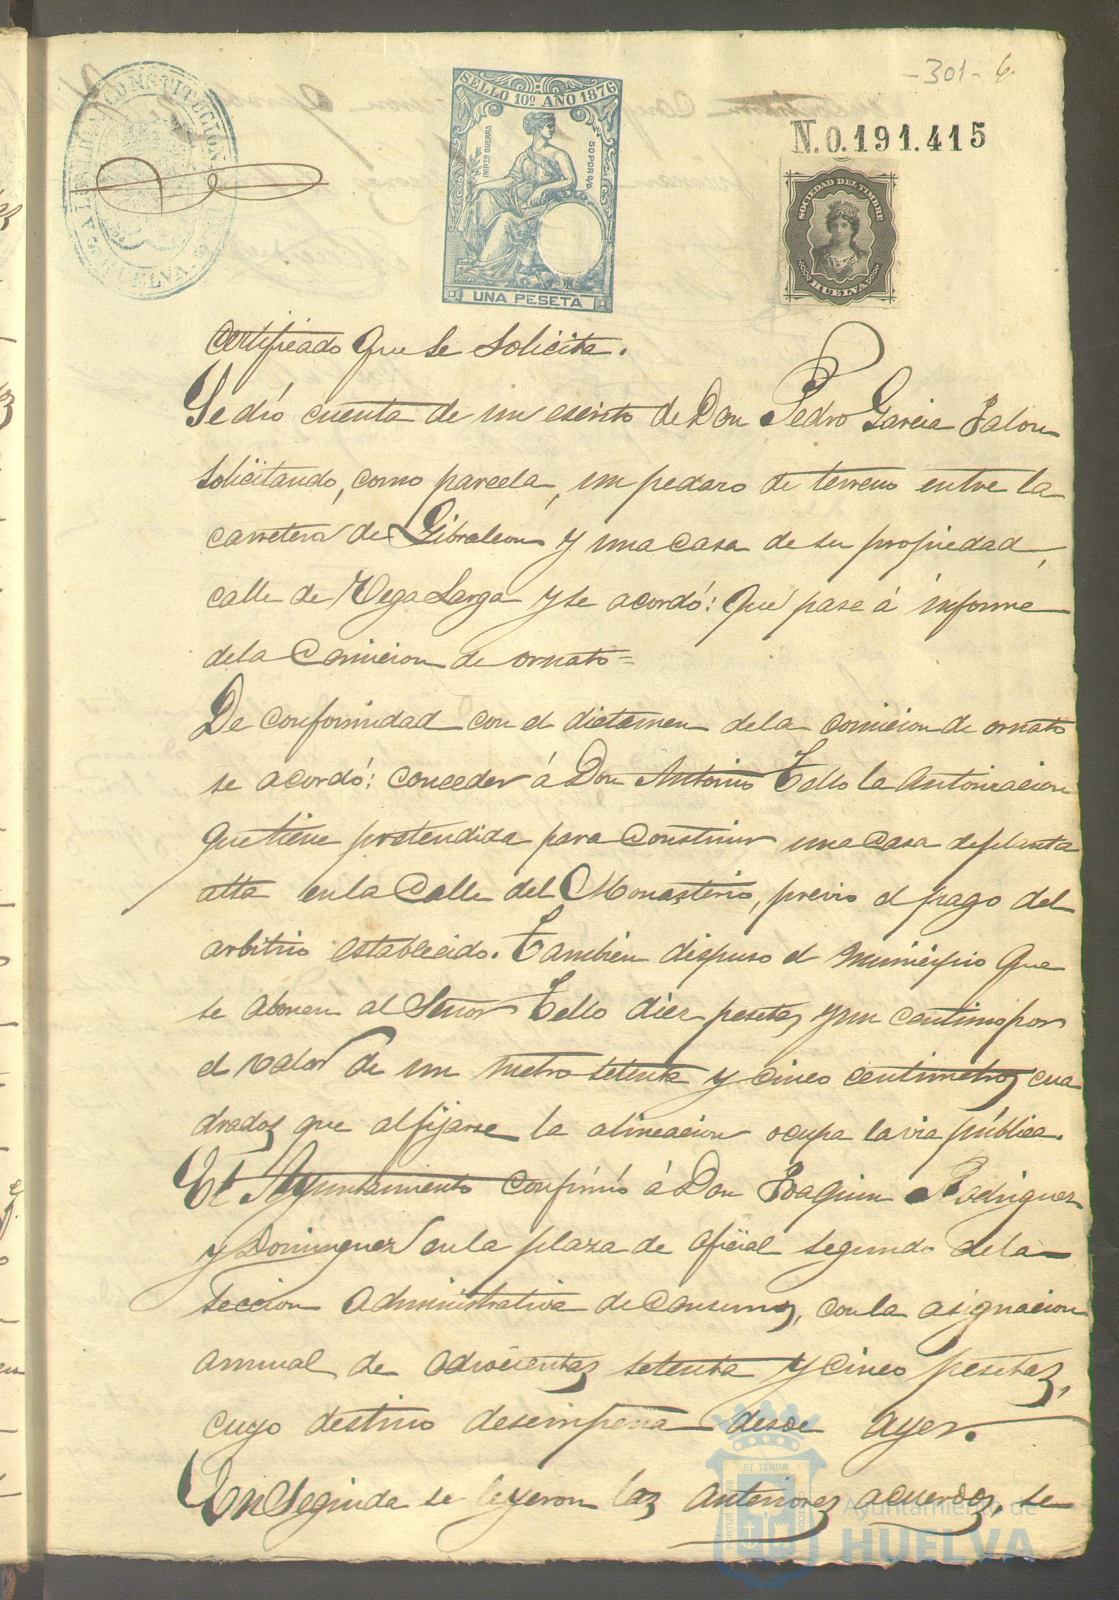 -301- 6.
N.0.191.415
CONSTITUCION
HUELVA
SELLO 10º AÑO 1876
IMPTO GUERRA
50 POR 0/0
UNA PESETA
SOCIEDAD DEL TIMBRE
HUELVA
certificado que se solicita.
Se dió cuenta de un escrito de Don Pedro Garcia Jalon
solicitando, como parcela, un pedazo de terreno entre la
carretera de Gibraleon y una casa de su propiedad,
calle de Vega Larga y se acordó: Que pase á informe
de la Comicion de ornato=
De conformidad con el dictamen de la comicion de ornato
se acordó: conceder á Don Antonio Tello la autorizacion
que tiene pretendida para construir una casa de planta
alta en la Calle del Monasterio, previo el pago del
arbitrio establecido. Tambien dispuso el Municipio que
se abonen al Señor Tello diez pesetas y un centimo por
el valor de un metro setenta y cinco centimetros cua
drados que al fijarse la alineacion ocupa la via pública.
El Ayuntamiento confirmó á Don Joaquin Rodriguez
y Dominguez en la plaza de oficial segundo de la
seccion administrativa de Consumos, con la asignacion
annual de odrocientas setenta y cinco pesetas,
cuyo destino desempeña desde ayer.
En seguida se leyeron los anteriores acuerdos, se
Ayuntamiento de
HUELVA